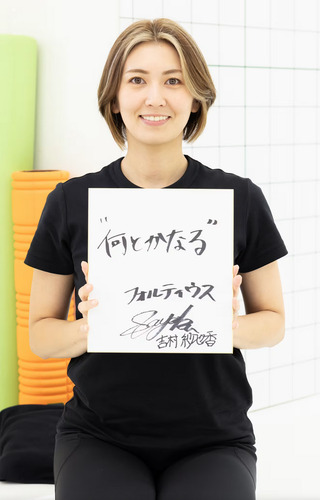 "何とかなる"
フォルティウス
吉村 紗也香